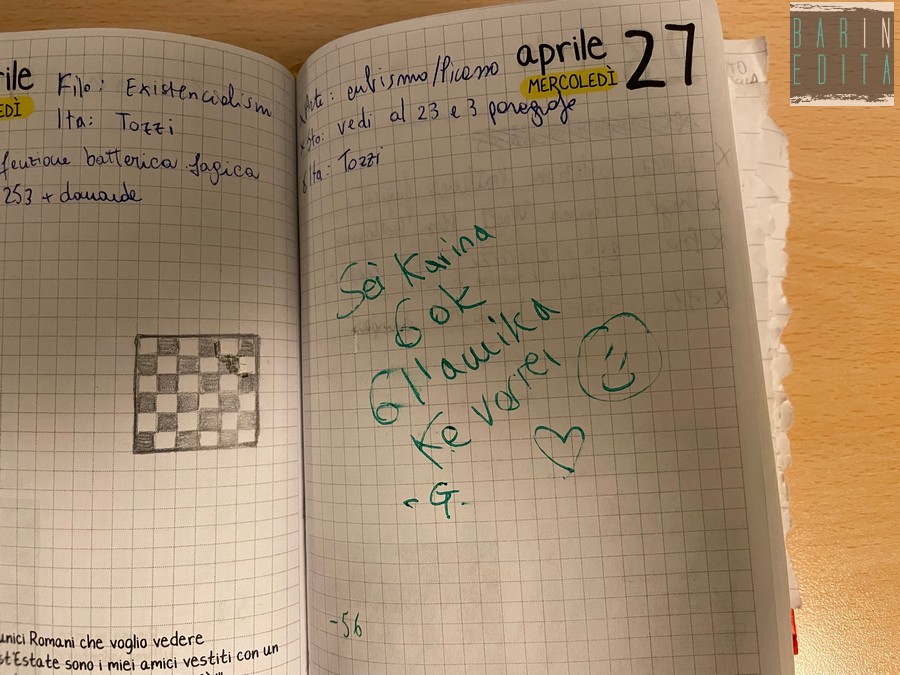 rile
EDÌ
Filo: Existencialism
Ita: Tozzi
batterica fagica
253 + domande
unici Romani che voglio vedere
st'Estate sono i miei amici vestiti con un
aprile 27
MERCOLEDÌ
Arte: cubismo/Picasso
vedi al 23 e 3
Ita: Tozzi
Sei Karina
6 ok
6 l'amika
Ke vorrei
- G.
-56
BARIN
EDITA